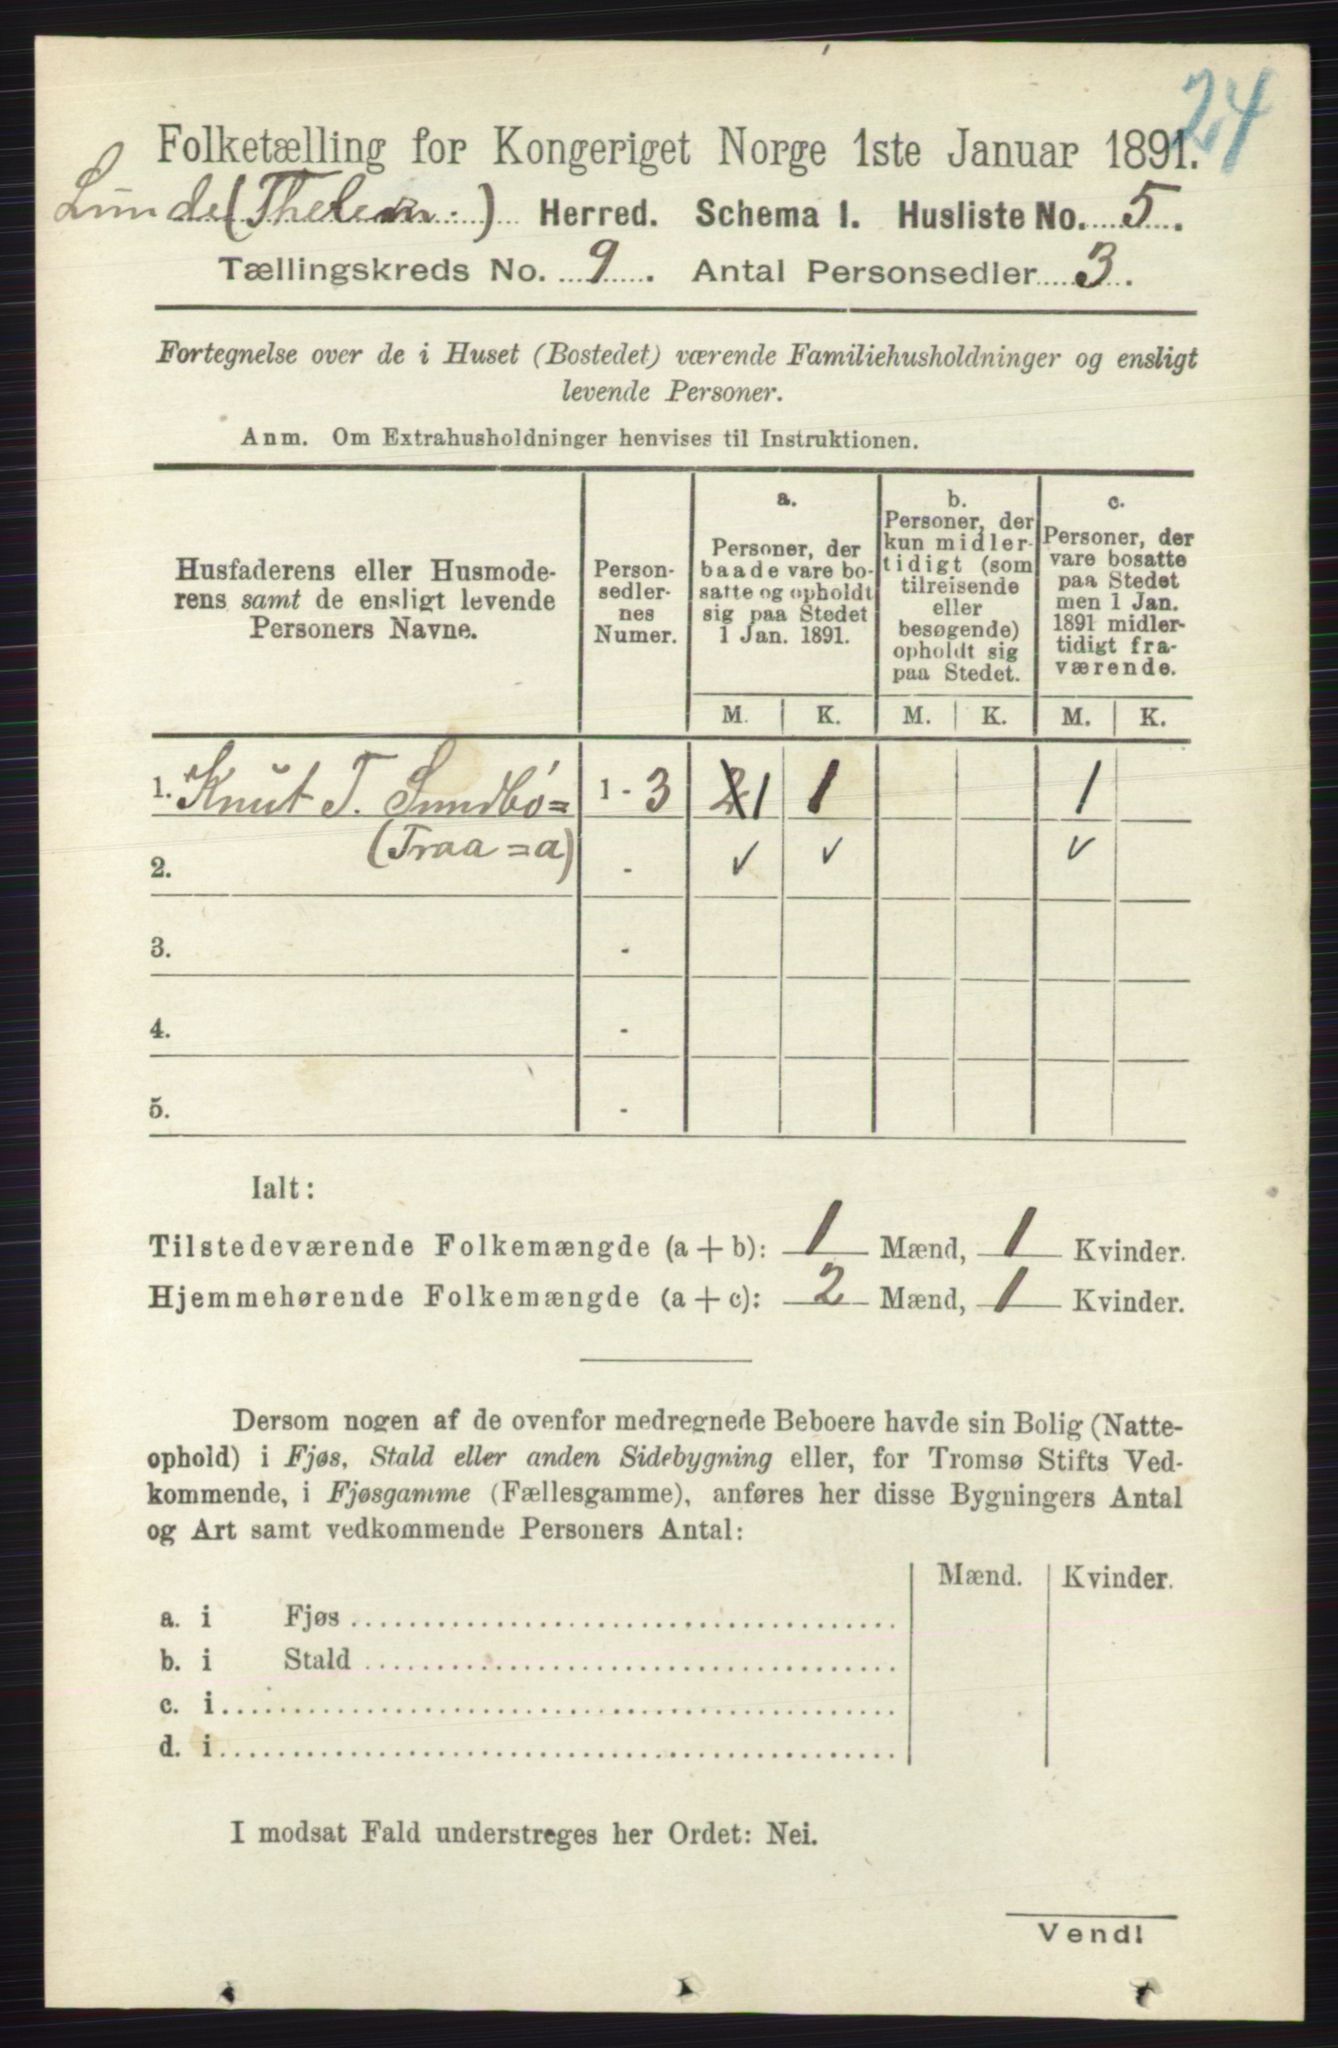 24
Folketælling for Kongeriget Norge 1ste Januar 1891.
Lunde (Thelem.) Herred. Schema 1. Husliste No. 5.
Tællingskreds No. 9. Antal Personsedler 3.
Fortegnelse over de i Huset (Bostedet) værende Familiehusholdninger og ensligt
levende Personer.
Anm. Om Extrahusholdninger henvises til Instruktionen.
Husfaderens eller Husmode-
rens samt de ensligt levende
Personers Navne.
Person-
sedler-
nes
Numer.
a.
Personer, der
baade vare bo-
satte og opholdt
sig paa Stedet
1 Jan. 1891.
b.
Personer, der
kun midler-
tidigt (som
tilreisende
eller
besøgende)
opholdt sig
paa Stedet.
c.
Personer, der
vare bosatte
paa Stedet
men 1 Jan.
1891 midler-
tidigt fra-
værende.
M. K. M. K. M. K.
1. Knut T. Sundbö= 1 - 3 2 1 1 1
(Traa=a)
2. - ✓ ✓ ✓
3. -
4. -
5. -
Ialt:
Tilstedeværende Folkemængde (a + b): 1 Mænd, 1 Kvinder.
Hjemmehørende Folkemængde (a + c): 2 Mænd, 1 Kvinder.
Dersom nogen af de ovenfor medregnede Beboere havde sin Bolig (Natte-
ophold) i Fjøs, Stald eller anden Sidebygning eller, for Tromsø Stifts Ved-
kommende, i Fjøsgamme (Fællesgamme), anføres her disse Bygningers Antal
og Art samt vedkommende Personers Antal:
Mænd. Kvinder.
a. i Fjøs
b. i Stald
c. i
d. i
I modsat Fald understreges her Ordet: Nei.
Vend!